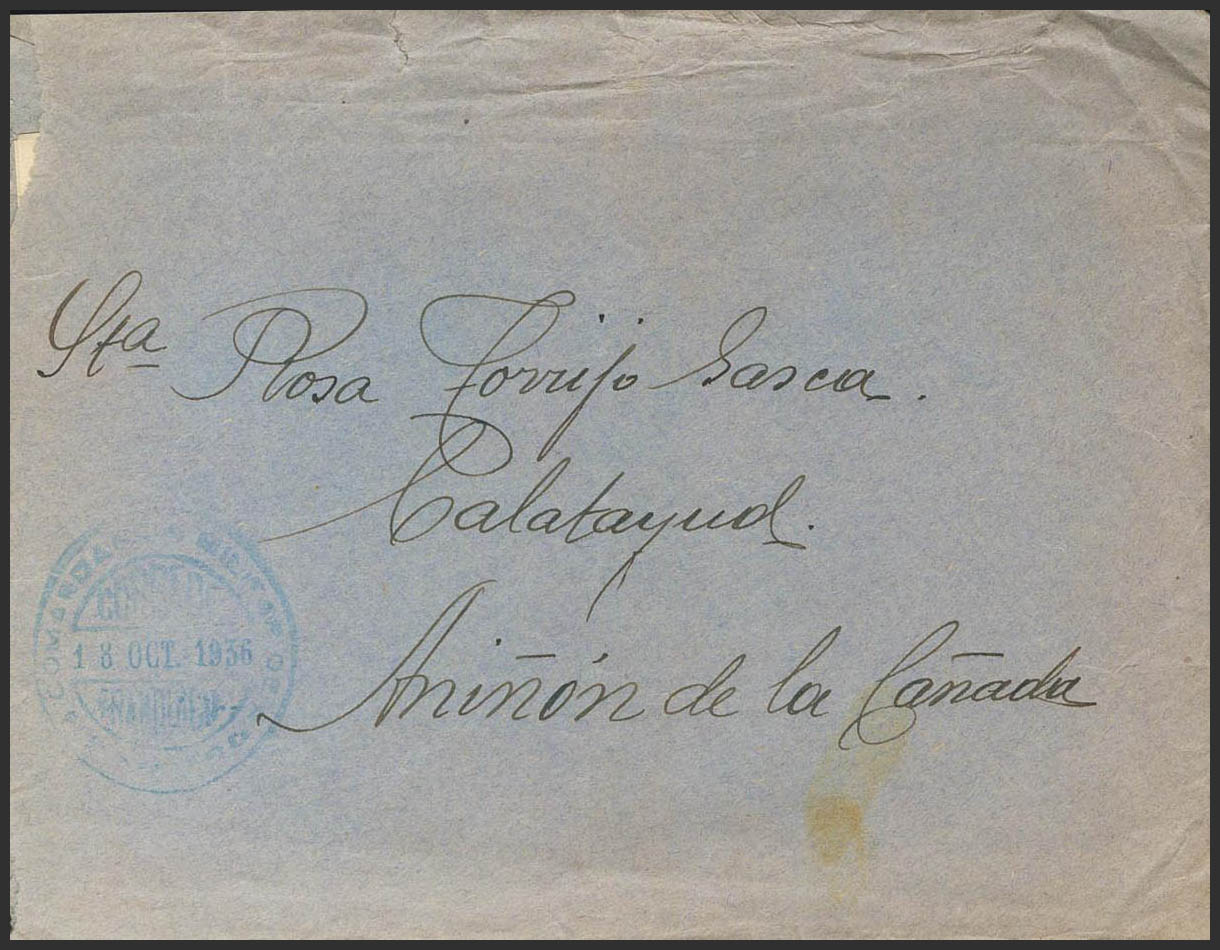 Sta Rosa Torrijo Gasca.
Calatayud.
Aniñón de la Cañada
18 OCT. 1936